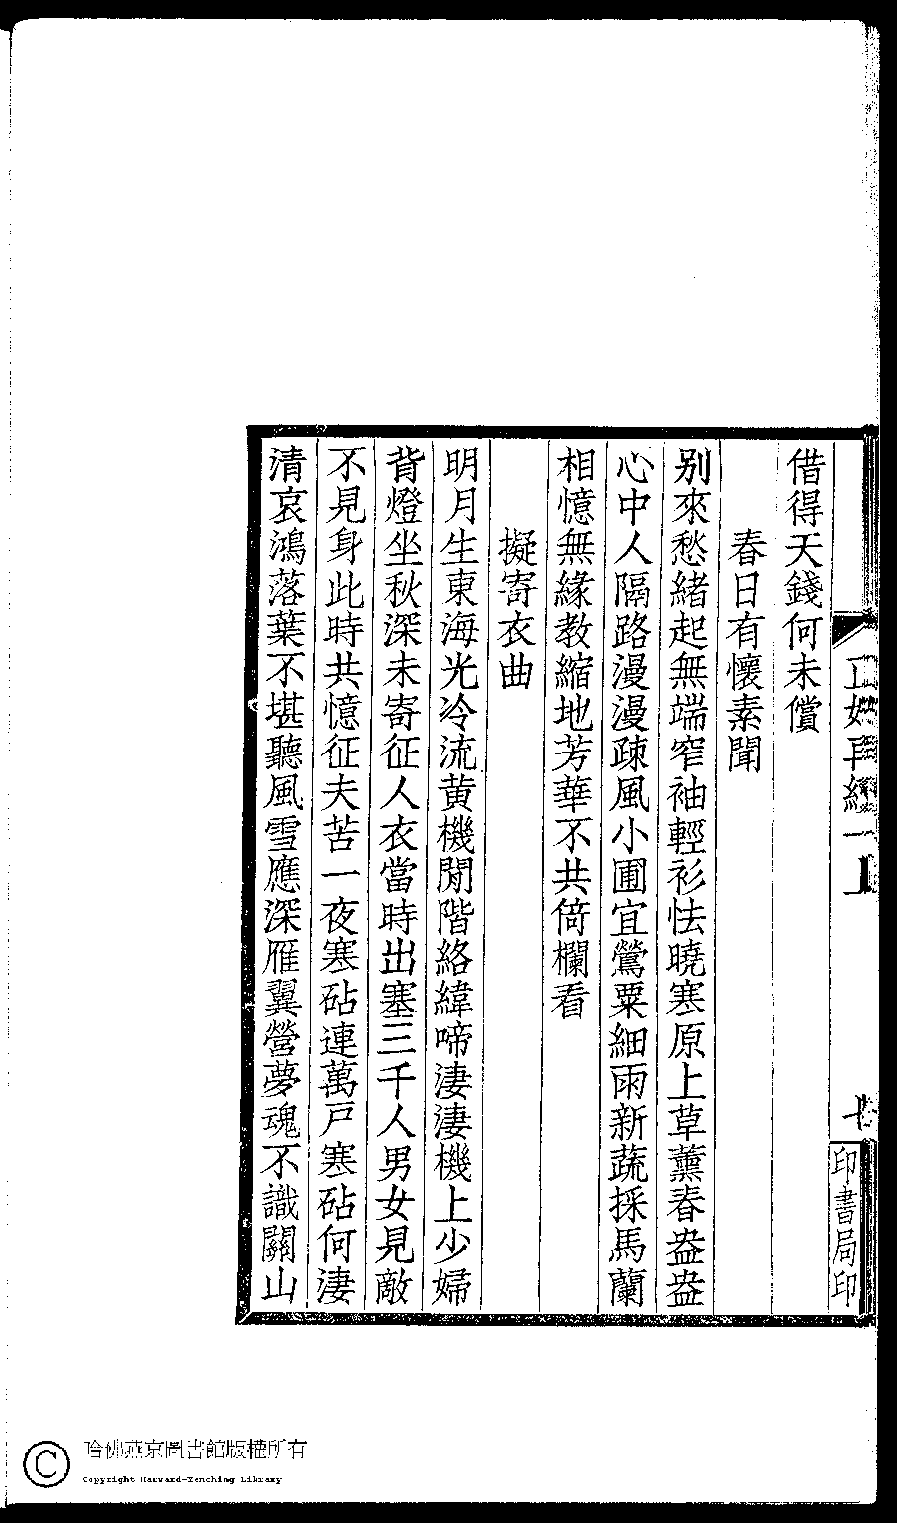 借得天錢何未償
春日有懷素聞
别來愁緒起無端窄袖輕衫怯曉寒原上草薰春盎盎
心中人隔路漫漫疎風小圃宜鶯粟細雨新蔬採馬蘭
相憶無緣教縮地芳華不共倚欄看
擬寄衣曲
明月生東海光冷流黄機閒階絡緯啼淒淒機上少婦
背燈坐秋深未寄征人衣當時出塞三千人男女見敵
不見身此時共憶征夫苦一夜寒砧連萬戸寒砧何淒
清哀鴻落葉不堪聽風雪應深雁翼營夢魂不識關山
印書局印
哈佛燕京圖書館版權所有
Copyright Harvard-Yenching Library